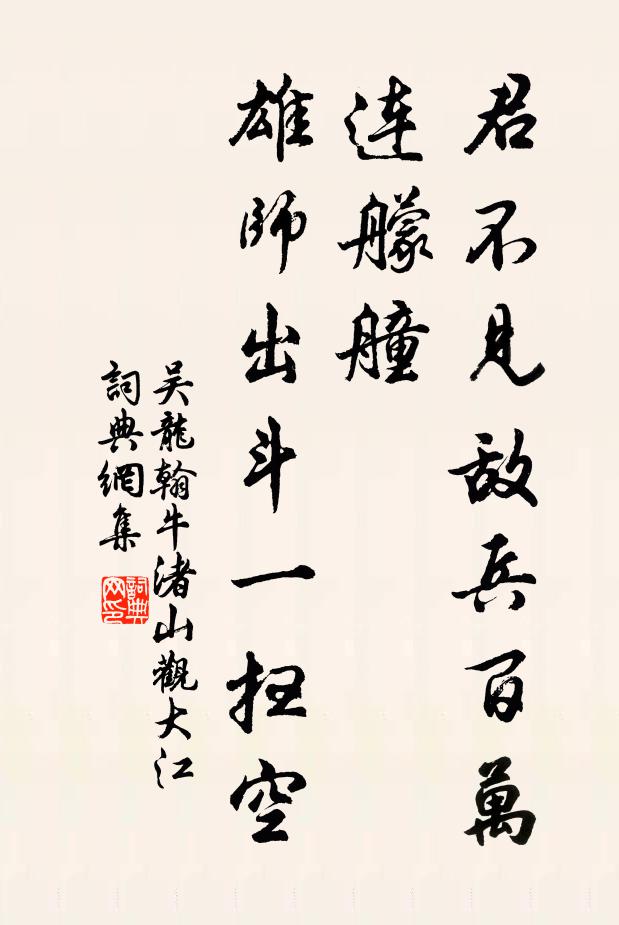 君不見敌兵百萬
連艨艟
雄師出斗一扫空
吴龍翰牛渚山觀大江
詞典網集
詞典网印